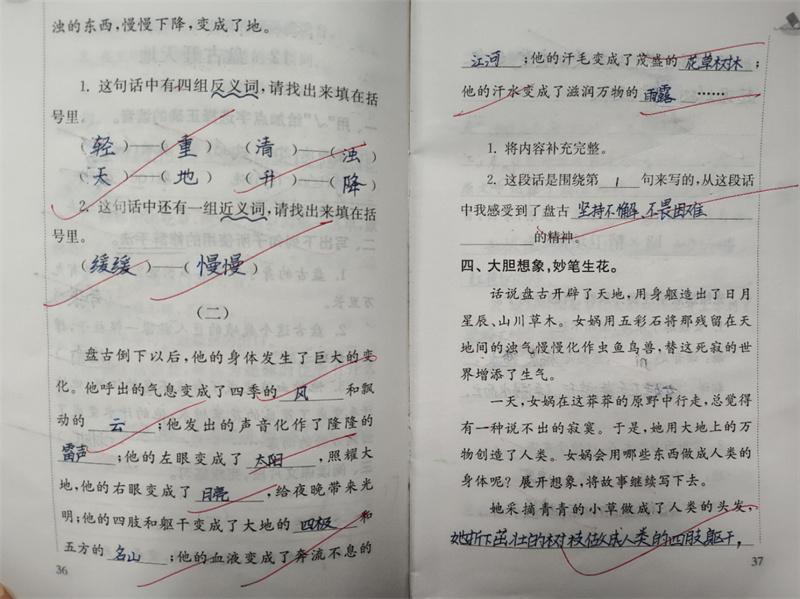 浊的东西，慢慢下降，变成了地。
1. 这句话中有四组反义词，请找出来填在括
号里。
（轻）—（重）（清）—（浊）
（天）—（地）（升）—（降）
2. 这句话中还有一组近义词，请找出来填在括
号里。
（缓缓）—（慢慢）
（二）
盘古倒下以后，他的身体发生了巨大的变
化。他呼出的气息变成了四季的 风 和飘
动的 云 ；他发出的声音化作了隆隆的
雷声 ；他的左眼变成了 太阳 ，照耀大
地，他的右眼变成了 月亮 ，给夜晚带来光
明；他的四肢和躯干变成了大地的 四极 和
五方的 名山 ；他的血液变成了奔流不息的
36
江河 ；他的汗毛变成了茂盛的 花草树木 ；
他的汗水变成了滋润万物的 雨露 ……
1. 将内容补充完整。
2. 这段话是围绕第 1 句来写的，从这段话
中我感受到了盘古 坚持不懈、不畏困难
的精神。
四、大胆想象，妙笔生花。
话说盘古开辟了天地，用身躯造出了日月
星辰、山川草木。女娲用五彩石将那残留在天
地间的浊气慢慢化作虫鱼鸟兽，替这死寂的世
界增添了生气。
一天，女娲在这莽莽的原野中行走，总觉得
有一种说不出的寂寞。于是，她用大地上的万
物创造了人类。女娲会用哪些东西做成人类的
身体呢？展开想象，将故事继续写下去。
她采摘青青的小草做成了人类的头发，
她折下茁壮的树枝做成人类的四肢躯干，
37